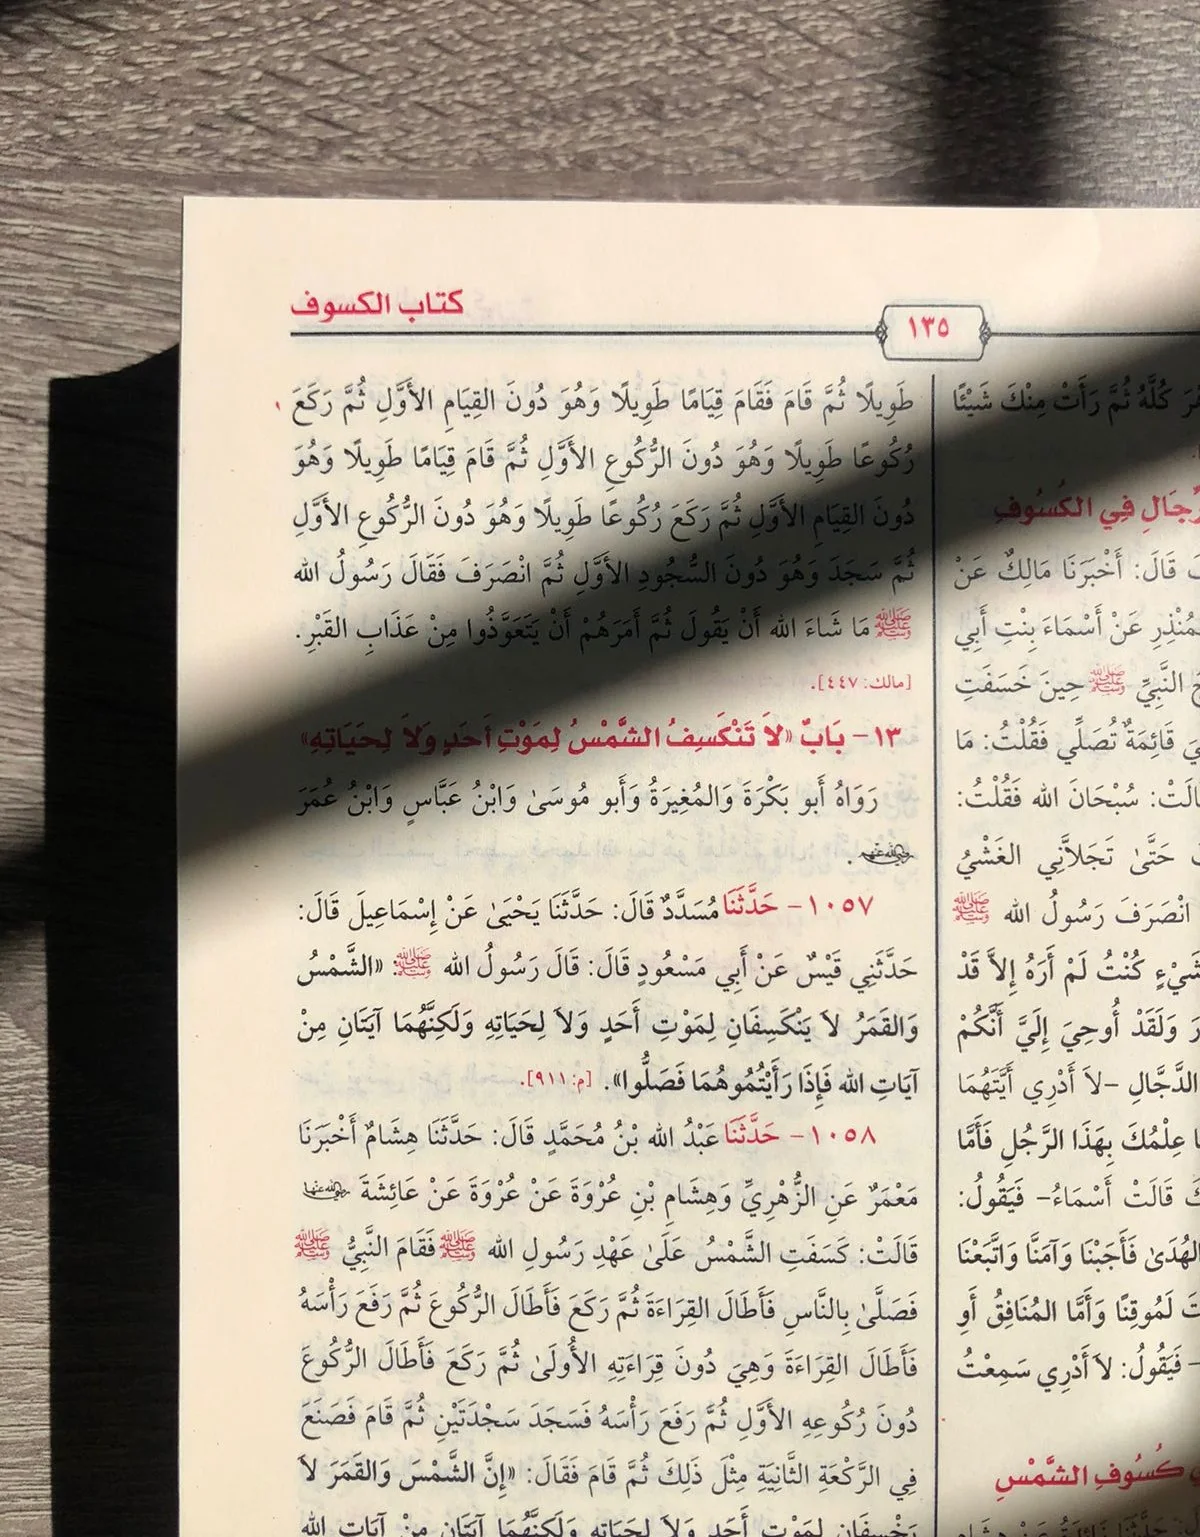 كتاب الكسوف
١٣٥
كُلَّهُ ثُمَّ رَأَتْ مِنْكَ شَيْئًا
فِي الكُسُوفِ
قَالَ: أَخْبَرَنَا مَالِكٌ عَنْ
عَنْ أَسْمَاءَ بِنْتِ أَبِي
النَّبِيِّ ﷺ حِينَ خَسَفَتِ
قَائِمَةٌ تُصَلِّي فَقُلْتُ: مَا
سُبْحَانَ الله فَقُلْتُ:
حَتَّىٰ تَجَلاَّنِي الغَشْيُ
انْصَرَفَ رَسُولُ الله ﷺ
كُنْتُ لَمْ أَرَهُ إِلاَّ قَدْ
وَلَقَدْ أُوحِيَ إِلَيَّ أَنَّكُمْ
الدَّجَّالِ -لاَ أَدْرِي أَيَّتَهُمَا
عِلْمُكَ بِهَذَا الرَّجُلِ فَأَمَّا
قَالَتْ أَسْمَاءُ- فَيَقُولُ:
فَأَجَبْنَا وَآمَنَّا وَاتَّبَعْنَا
لَمُوقِنًا وَأَمَّا المُنَافِقُ أَوِ
- فَيَقُولُ: لاَ أَدْرِي سَمِعْتُ
كُسُوفِ الشَّمْسِ
طَوِيلًا ثُمَّ قَامَ فَقَامَ قِيَامًا طَوِيلًا وَهُوَ دُونَ القِيَامِ الأَوَّلِ ثُمَّ رَكَعَ
رُكُوعًا طَوِيلًا وَهُوَ دُونَ الرُّكُوعِ الأَوَّلِ ثُمَّ قَامَ قِيَامًا طَوِيلًا وَهُوَ
دُونَ القِيَامِ الأَوَّلِ ثُمَّ رَكَعَ رُكُوعًا طَوِيلًا وَهُوَ دُونَ الرُّكُوعِ الأَوَّلِ
ثُمَّ سَجَدَ وَهُوَ دُونَ السُّجُودِ الأَوَّلِ ثُمَّ انْصَرَفَ فَقَالَ رَسُولُ الله
ﷺ مَا شَاءَ الله أَنْ يَقُولَ ثُمَّ أَمَرَهُمْ أَنْ يَتَعَوَّذُوا مِنْ عَذَابِ القَبْرِ.
[مالك: ٤٤٧].
١٣- بَابٌ «لاَ تَنْكَسِفُ الشَّمْسُ لِمَوْتِ أَحَدٍ وَلاَ لِحَيَاتِهِ»
رَوَاهُ أَبو بَكْرَةَ وَالمُغِيرَةُ وَأَبو مُوسَىٰ وَابْنُ عَبَّاسٍ وَابْنُ عُمَرَ
رضي الله عنهم.
١٠٥٧- حَدَّثَنَا مُسَدَّدٌ قَالَ: حَدَّثَنَا يَحْيَىٰ عَنْ إِسْمَاعِيلَ قَالَ:
حَدَّثَنِي قَيْسٌ عَنْ أَبِي مَسْعُودٍ قَالَ: قَالَ رَسُولُ الله ﷺ: «الشَّمْسُ
وَالقَمَرُ لاَ يَنْكَسِفَانِ لِمَوْتِ أَحَدٍ وَلاَ لِحَيَاتِهِ وَلَكِنَّهُمَا آيَتَانِ مِنْ
آيَاتِ الله فَإِذَا رَأَيْتُمُوهُمَا فَصَلُّوا». [م: ٩١١].
١٠٥٨- حَدَّثَنَا عَبْدُ الله بْنُ مُحَمَّدٍ قَالَ: حَدَّثَنَا هِشَامٌ أَخْبَرَنَا
مَعْمَرٌ عَنِ الزُّهْرِيِّ وَهِشَامِ بْنِ عُرْوَةَ عَنْ عُرْوَةَ عَنْ عَائِشَةَ رضي الله عنها
قَالَتْ: كَسَفَتِ الشَّمْسُ عَلَىٰ عَهْدِ رَسُولِ الله ﷺ فَقَامَ النَّبِيُّ ﷺ
فَصَلَّىٰ بِالنَّاسِ فَأَطَالَ القِرَاءَةَ ثُمَّ رَكَعَ فَأَطَالَ الرُّكُوعَ ثُمَّ رَفَعَ رَأْسَهُ
فَأَطَالَ القِرَاءَةَ وَهِيَ دُونَ قِرَاءَتِهِ الأُولَىٰ ثُمَّ رَكَعَ فَأَطَالَ الرُّكُوعَ
دُونَ رُكُوعِهِ الأَوَّلِ ثُمَّ رَفَعَ رَأْسَهُ فَسَجَدَ سَجْدَتَيْنِ ثُمَّ قَامَ فَصَنَعَ
فِي الرَّكْعَةِ الثَّانِيَةِ مِثْلَ ذَلِكَ ثُمَّ قَامَ فَقَالَ: «إِنَّ الشَّمْسَ وَالقَمَرَ لاَ
يَخْسِفَانِ لِمَوْتِ أَحَدٍ وَلاَ لِحَيَاتِهِ وَلَكِنَّهُمَا آيَتَانِ مِنْ آيَاتِ الله